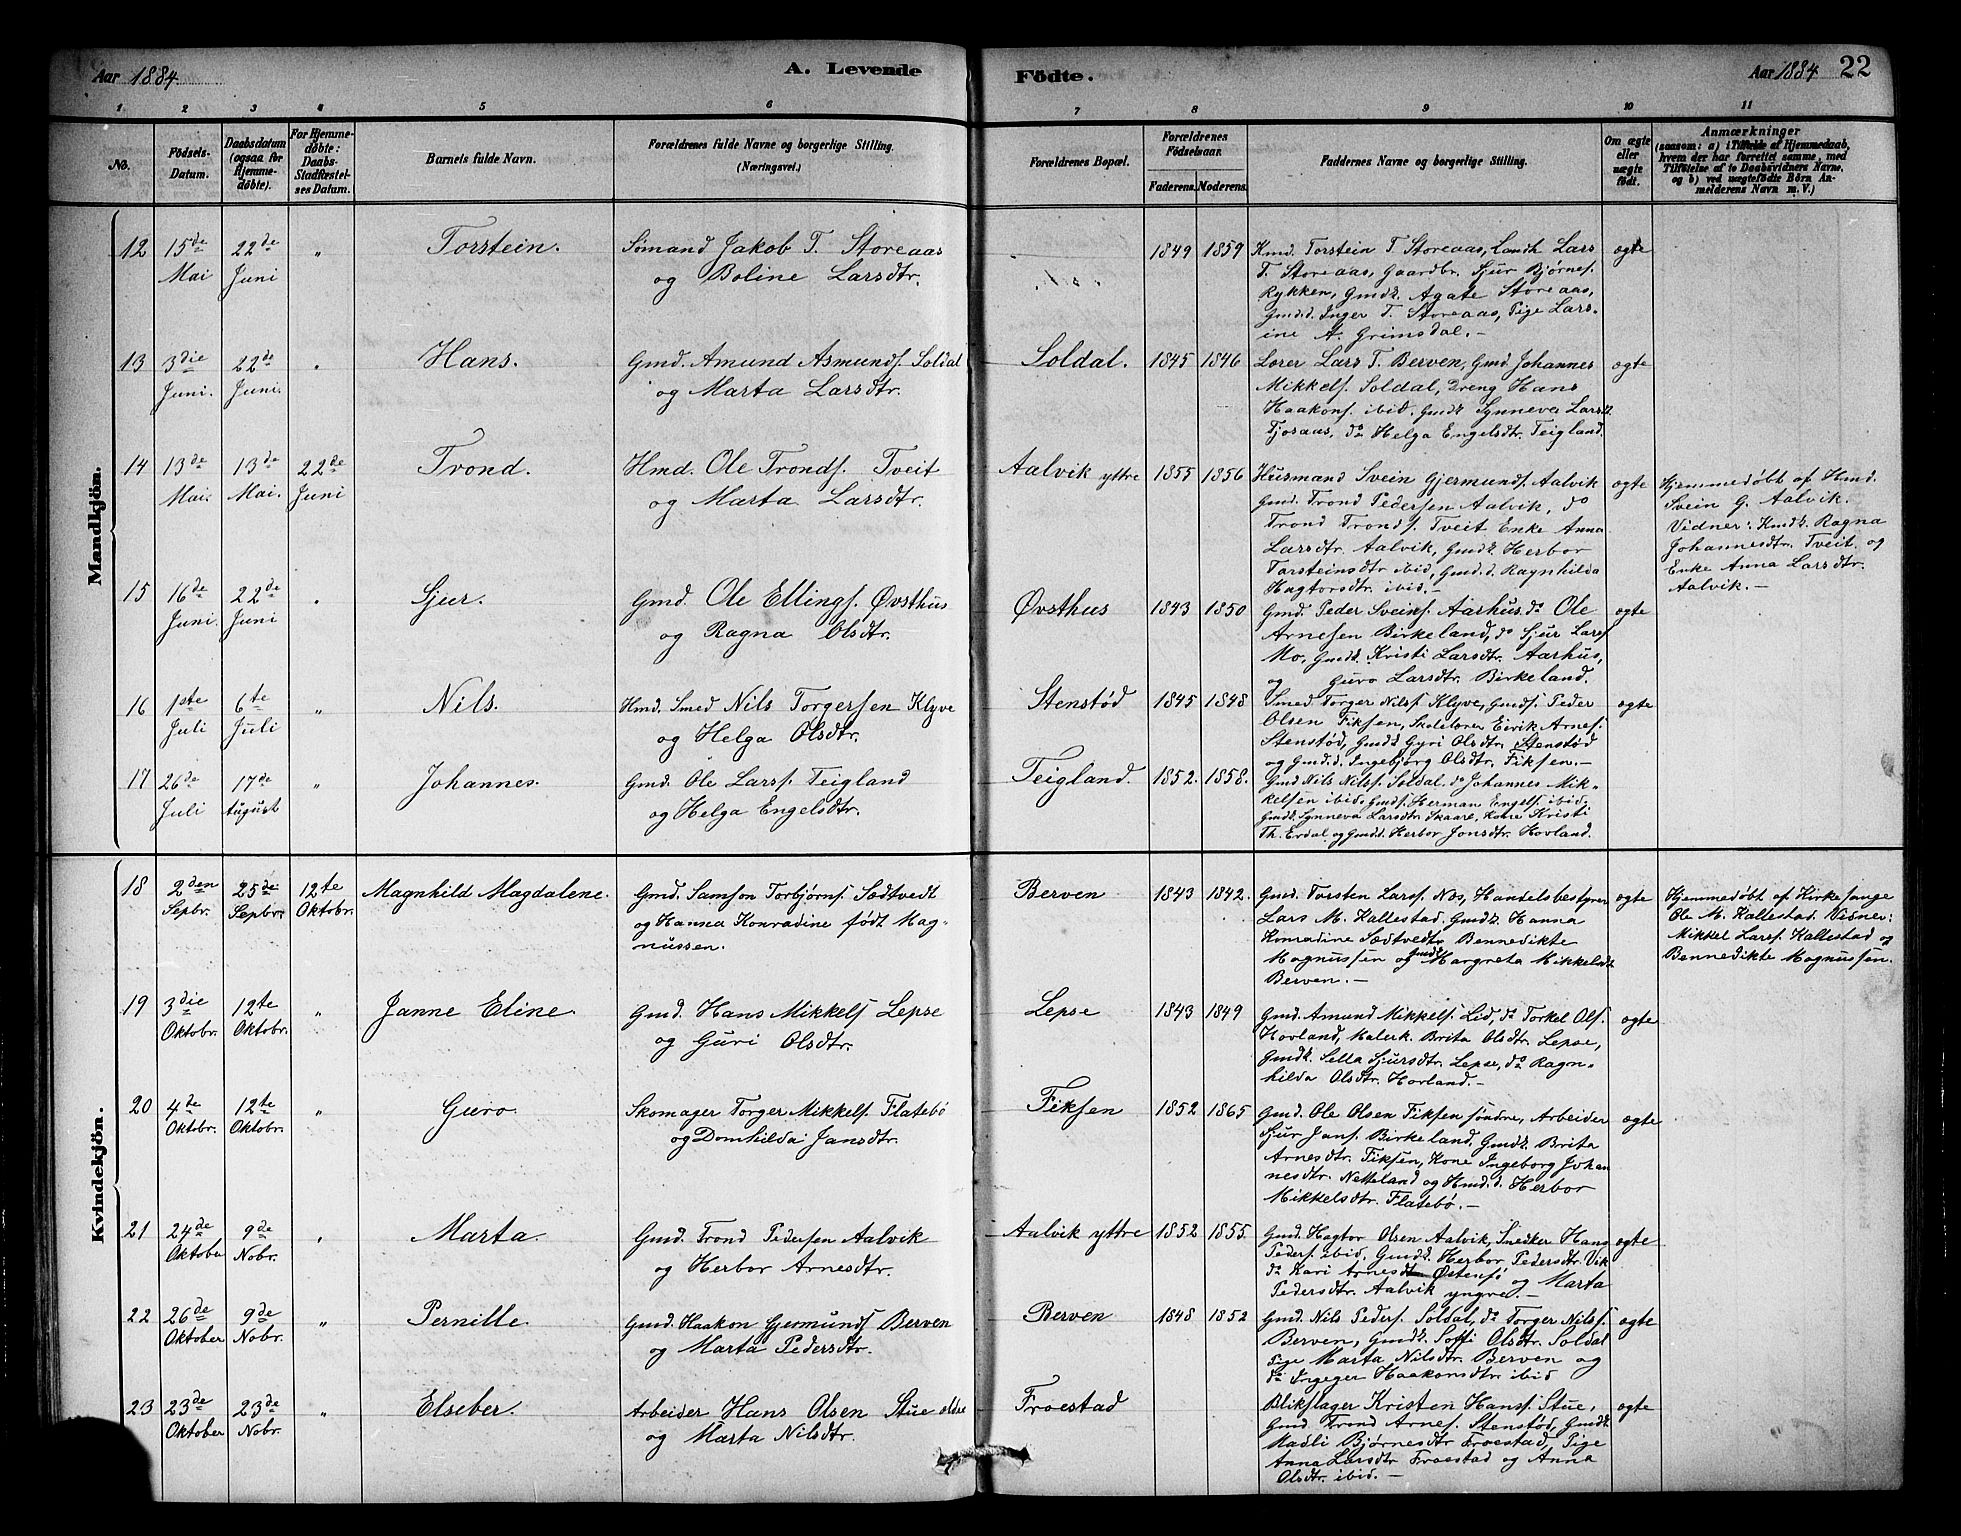 Aar 1884. A. Levende Födte. Aar 1884 22
1 2 3 4 5 6 7 8 9 10 11
No.
Födsels-Datum.
Daabsdatum (ogsaa for Hjemmedøbte).
For Hjemmedøbte: Daabs-Stadfæstelses Datum.
Barnets fulde Navn.
Forældrenes fulde Navne og borgerlige Stilling.
(Næringsvei.)
Forældrenes Bopæl.
Forældrenes Födselsaar.
Faderens. Moderens.
Faddernes Navne og borgerlige Stilling.
Om ægte eller uægte født.
Anmærkninger
(saasom: a) i Tilfælde af Hjemmedaab,
hvem der har forrettet samme, med
Tilföielse af to Daabsvidners Navne,
og b) ved uægtefödte Börn Anmelderens Navn m. V.)
Mandkjön.
12 15de Mai 22de Juni " Torstein. Sømand Jakob T. Storeaas
og Boline Larsdtr.
1849 1859 Kmd. Torstein T. Storeaas, Landh. Lars
T. Storeaas, Gaardbr. Sjur Bjørnes.
Rykken, Gmdk. Agate Storeaas,
Gmd.d. Inger T. Storeaas, Pige Lars-
ine A. Grimsdal. -
ogte
13 3die Juni. 22de Juni. " Hans. Gmd. Amund Asmunds. Soldal
og Marta Larsdtr.
Soldal. 1845 1846 Lorer Lars T. Berven, Gmd. Johannes
Mikkels. Soldal, Dreng Hans
Haakons. ibid. Gmdk Synneva Larsd.
Tjosaas, do Helga Engelsdtr. Teigland.
ogte
14 13de Mai. 13de Mai. 22de Juni Trond. Hmd. Ole Tronds. Tveit
og Marta Larsdtr.
Aalvik yttre 1855 1856 Husmand Svein Gjermunds. Aalvik
Gmd. Trond Pedersen Aalvik, do
Trond Tronds. Tveit Enke Anna
Larsdtr. Aalvik, Gmdk. Herbor
Torsteinsdtr ibid, Gmd.d. Ragnhilda
Hagtorsdtr. ibid. -
ogte
Hjemmedøbt af Hmd.
Svein G. Aalvik.
Vidner: Kmdk. Ragna
Johannesdtr. Tveit og
Enke Anna Larsdtr.
Aalvik. -
15 16de Juni 22de Juni " Sjur. Gmd. Ole Ellings. Øvsthus
og Ragna Olsdtr.
Øvsthus 1843 1850 Gmd. Peder Sveins. Aarhus. do Ole
Arnesen Birkeland, do Sjur Lars.
Mo, Gmdk. Kristi Larsdtr. Aarhus,
og Guro Larsdtr. Birkeland.
ogte
16 1ste Juli 6te Juli " Nils. Hmd. Smed Nils Torgersen Klyve
og Helga Olsdtr.
Stenstød 1845 1848 Smed Torger Nils. Klyve, Gmds. Peder
Olsen Fiksen, Skolelærer Eirik Arnes.
Stenstød, Gmdk. Gyri Olsdtr. Stenstød
og Gmd.d. Ingebjørg Olsdtr. Fiksen. -
ogte
17 26de Juli 17de August " Johannes. Gmd. Ole Lars. Teigland
og Helga Engelsdtr.
Teigland. 1852. 1858. Gmd Nils Nils. Soldal. do Johannes Mik-
kelsen ibid, Gmds. Herman Engels. ibid,
Gmdk. Synneva Larsdtr. Skaare, Kone Kristi
Th. Erdal og Gmdd. Herbor Jonsdtr. Hovland.
Kvindekjön.
18 2den Sepbr. 25de Sepbr. 12te Oktobr. Magnhild Magdalene. Gmd. Samson Torbjørns. Sædtvedt
og Hanna Konradine født Mag-
nussen.
Berven 1843 1842. Gmd. Torsten Lars. Nos, Handelsbestyrer
Lars M. Kallestad. Gmdk. Hanna
Konradine Sædtvedt, Bennedikte
Magnussen og Gmdd. Margreta Mikkelsdt
Berven. -
ogte
Hjemmedøbt af Kirkesange
Ole M. Kallestad. Vidner:
Mikkel Lars. Kallestad og
Bennedikte Magnussen.
19 3die Oktobr. 12te Oktobr. " Janne Eline. Gmd. Hans Mikkels Lepse
og Guri Olsdtr.
Lepse 1843 1849 Gmd. Amund Mikkels. Lid, do Torkel Ols.
Hovland, Malerk. Brita Olsdtr. Lepse,
Gmdk. Sella Sjursdtr. Lepse, do Ragn-
hilda Olsdtr. Hovland. -
ogte
20 4de Oktbr. 12te Oktobr. " Guro. Skomager Torger Mikkels. Flatebö
og Domhilda Jansdtr.
Fiksen 1852 1865 Gmd. Ole Olsen Fiksen søndre, Arbeider
Sjur Jans. Birkeland, Gmdk. Brita
Arnesdtr. Fiksen, Kone Ingeborg Johan
nesdtr. Netteland og Hmd.d. Herbor
Mikkelsdtr. Flatebø. -
ogte
21 24de Oktober 9de Nobr. " Marta. Gmd. Trond Pedersen Aalvik
og Herbor Arnesdtr.
Aalvik yttre 1852 1855 Gmd. Hagtor Olsen Aalvik, Snedker Hans
Peders. ibid, Gmdk. Herbor Pedersdtr. Vik
do Kari Arnesdtr Østensø og Marta
Pedersdtr. Aalvik yngre. -
ogte
22 26de Oktober 9de Nobr. " Pernille. Gmd. Haakon Germunds Berven
og Marta Pedersdtr.
Berven 1848 1852 Gmd. Nils Peders. Soldal, do Torger Nils.
Berven, Gmdk. Soffi Olsdtr. Soldal
Pige Marta Nilsdtr. Berven og
do Ingeger Haakonsdtr. ibid
ogte
23 23de Oktober 23de Nobr. " Elseber. Arbeider Hans Olsen Stue ældre
og Marta Nilsdtr.
Froestad Blikslager Kristen Hans. Stue,
Gmd. Trond Arnes. Stenstød, Gmdk.
Madli Bjørnesdtr Froestad, Pige
Anna Larsdtr Froestad og Anna
Olsdtr. ibid. -
ogte